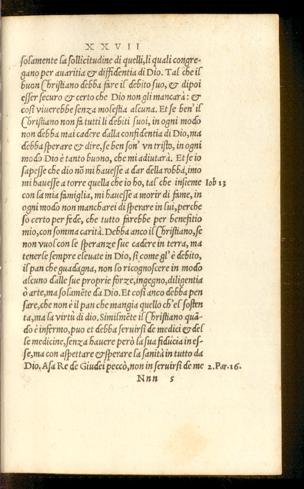 XXVII
solamente la sollicitudine di quelli, li quali congre-
gano per auaritia & diffidentia di Dio. Tal che il
buon Christiano debba fare il debito suo, & dipoi
esser securo & certo che Dio non gli mancarà: &
così viuerebbe senza molestia alcuna. Et se ben'il
Christiano non fa tutti li debiti suoi, in ogni modo
non debba mai cadere dalla confidentia di Dio, ma
debba sperare & dire, se ben son' vn tristo, in ogni
modo Dio è tanto buono, che mi adiutarà. Et se io
sapesse che dio nõ mi hauesse a dar della robba, imo
mi hauesse a torre quella che io ho, tal che insieme Iob 13
con la mia famiglia, mi hauesse a morir di fame, in
ogni modo non mancharei di sperare in lui, perche
so certo per fede, che tutto farebbe per benefitio
mio, con somma carità. Debba anco il Christiano, se
non vuol con le speranze sue cadere in terra, ma
tenerle sempre eleuate in Dio, sì come gl'è debito,
il pan che guadagna, non lo ricognoscere in modo
alcuno dalle sue proprie forze, ingegno, diligentia
ò arte, ma solamẽte da Dio. Et così anco debba pen
sare, che non è il pan che mangia quello ch'el sosten
ta, ma la virtù di dio. Similmẽte il Christiano quã-
do è infermo, puo et debba seruirsi de medici & del
le medicine, senza hauere però la sua fiducia in es-
se, ma con aspettare & sperare la sanità in tutto da
Dio. Asa Re de Giudei peccò, non in seruirsi de me 2. Par. 16.
Nnn 5